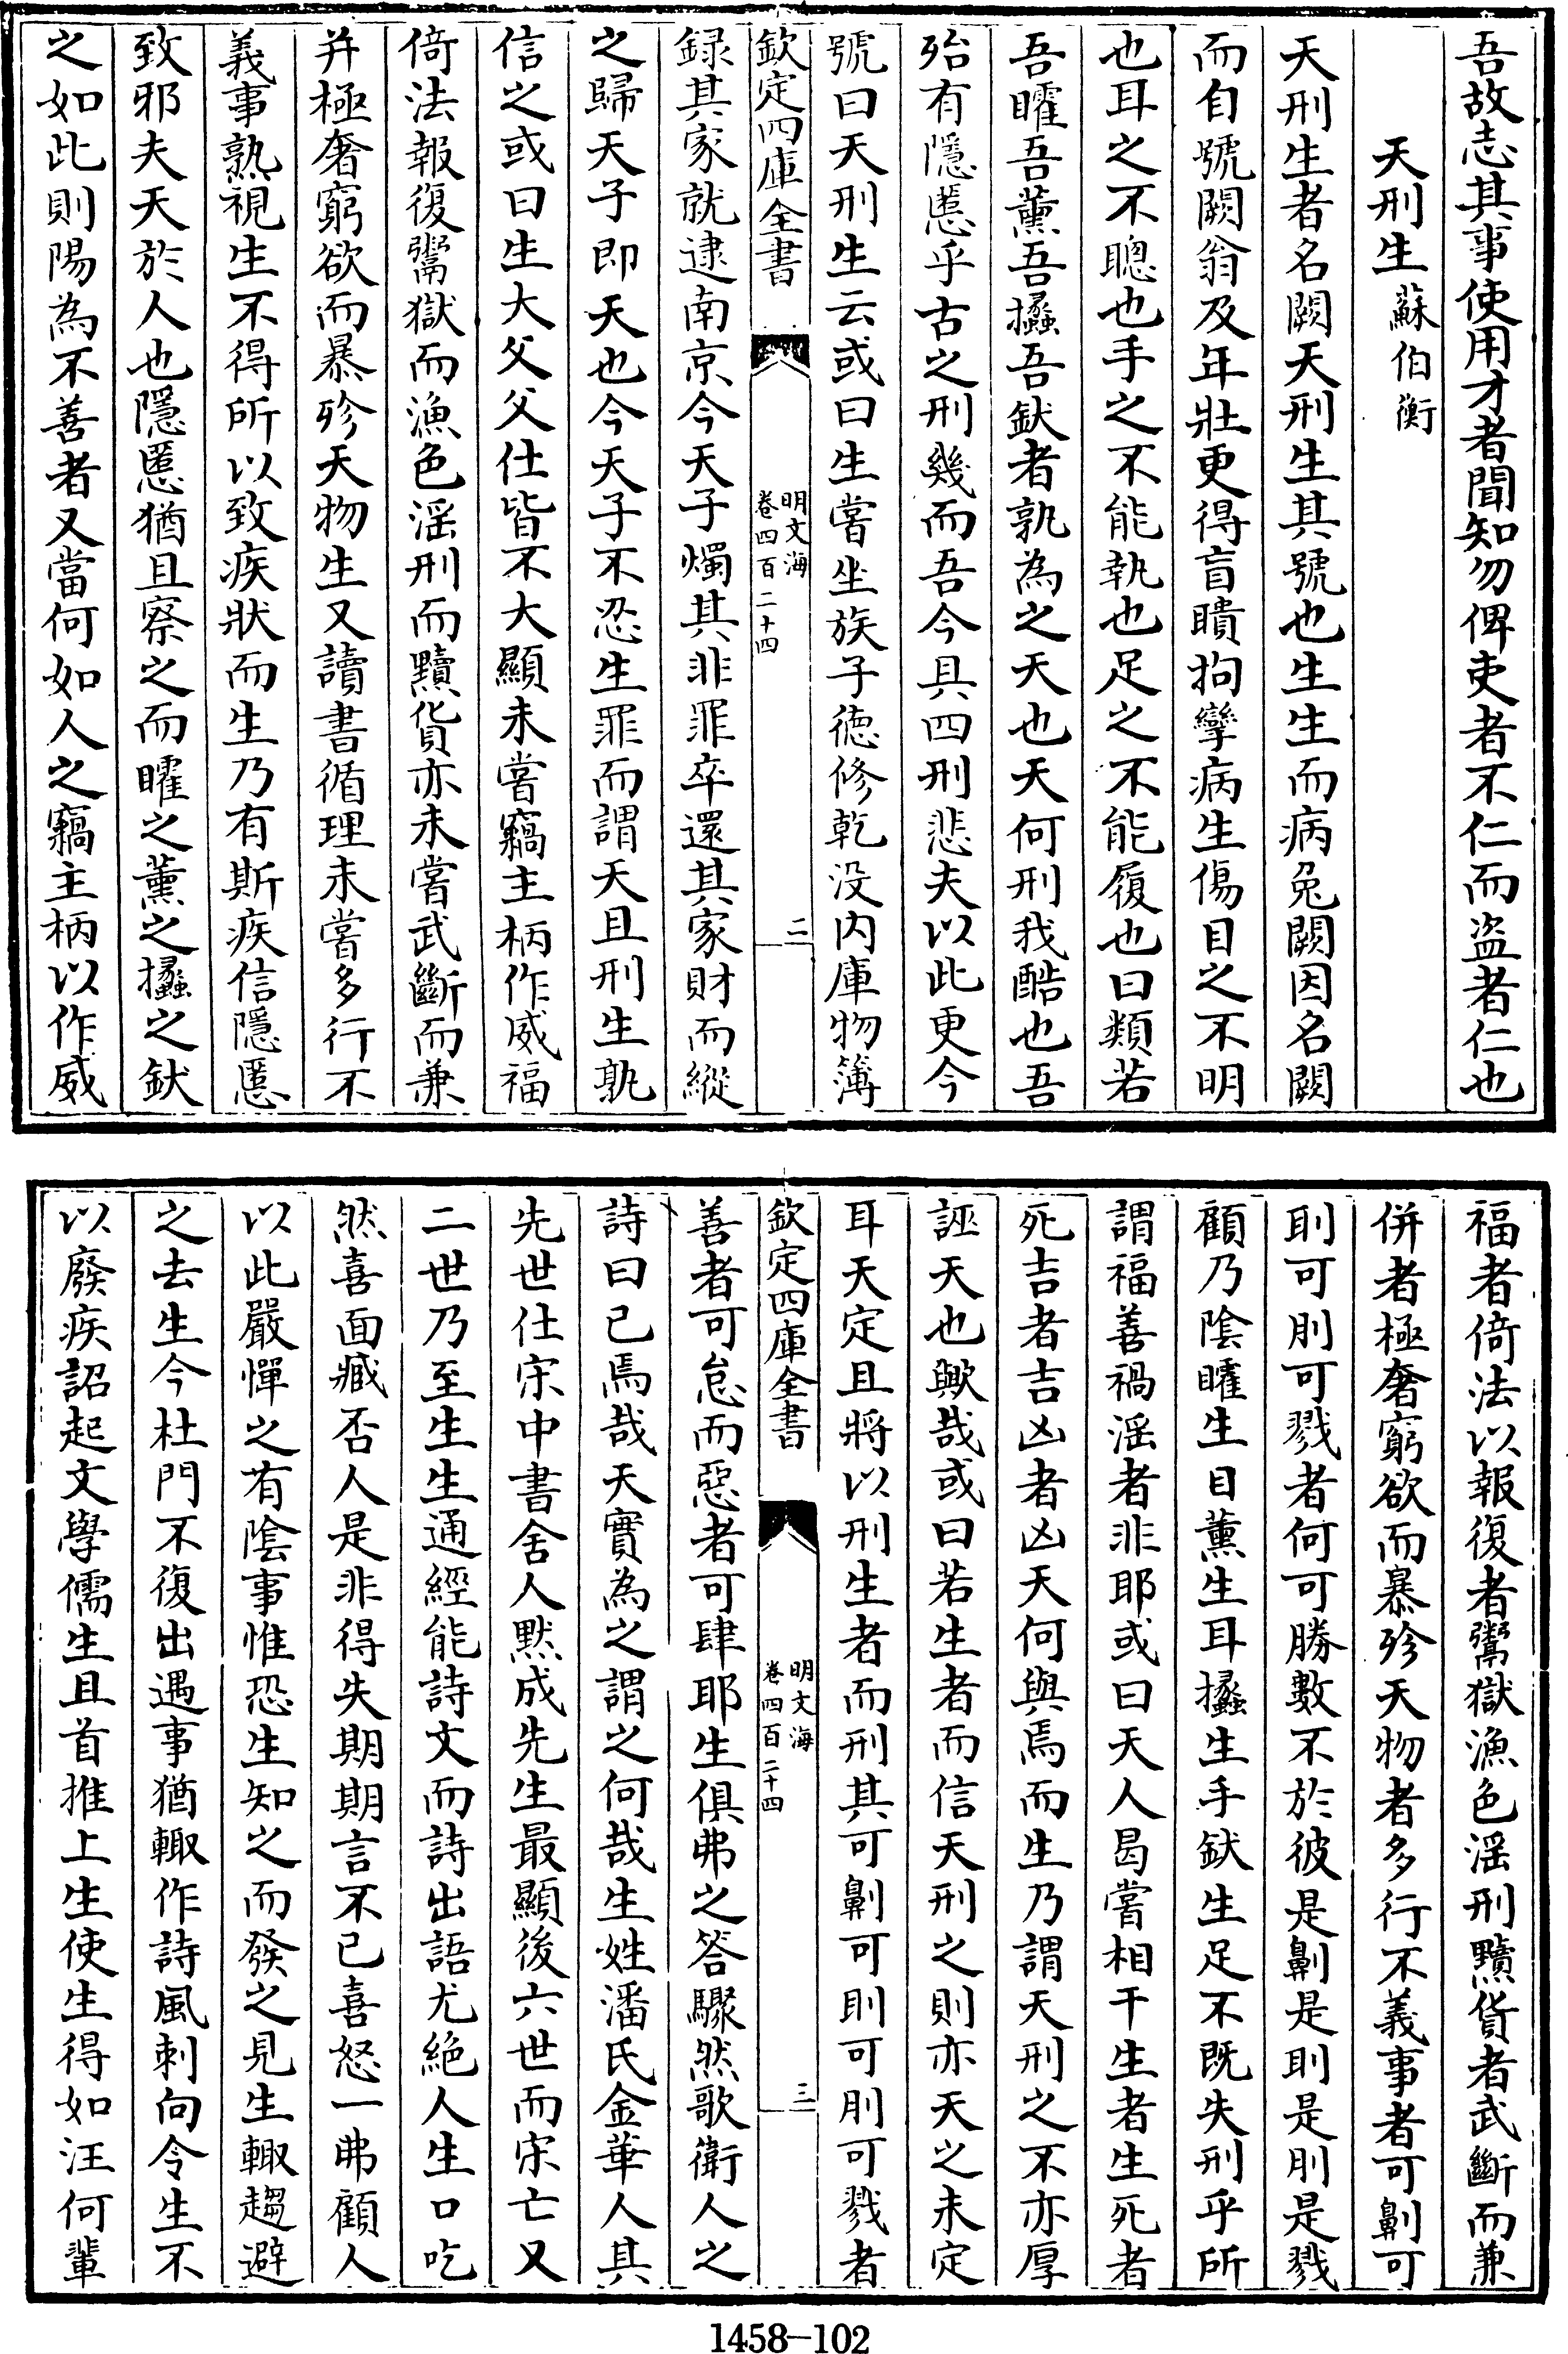 吾故志其事使用才者聞知勿俾吏者不仁而盗者仁也
天刑生 蘇伯衡
天刑生者名闕天刑生其號也生生而病兔闕因名闕
而自號闕翁及年壯更得盲聵拘攣病生傷目之不明
也耳之不聰也手之不能執也足之不能履也曰類若
吾矐吾薰吾㩎吾釱者孰為之天也天何刑我酷也吾
殆有隱慝乎古之刑幾而吾今具四刑悲夫以此更今
號曰天刑生云或曰生嘗坐族子德修乾没内庫物簿
欽定四庫全書
明文海
卷四百二十四
二
録其家就逮南京今天子燭其非罪卒還其家財而縱
之歸天子即天也今天子不忍生罪而謂天且刑生孰
信之或曰生大父父仕皆不大顯未嘗竊主柄作威福
倚法報復鬻獄而漁色淫刑而黷貨亦未嘗武斷而兼
并極奢窮欲而暴殄天物生又讀書循理未嘗多行不
義事熟視生不得所以致疾狀而生乃有斯疾信隱慝
致邪夫天於人也隱慝猶且察之而矐之薰之㩎之釱
之如此則陽為不善者又當何如人之竊主柄以作威
福者倚法以報復者鬻獄漁色淫刑黷貨者武斷而兼
併者極奢窮欲而暴殄天物者多行不義事者可劓可
刵可刖可戮者何可勝數不於彼是劓是刵是刖是戮
顧乃陰矐生目薰生耳㩎生手釱生足不既失刑乎所
謂福善禍淫者非耶或曰天人曷嘗相干生者生死者
死吉者吉凶者凶天何與焉而生乃謂天刑之不亦厚
誣天也歟哉或曰若生者而信天刑之則亦天之未定
耳天定且將以刑生者而刑其可劓可刵可刖可戮者
欽定四庫全書
明文海
卷四百二十四
三
善者可怠而惡者可肆耶生俱弗之答驟然歌衛人之
詩曰已焉哉天實為之謂之何哉生姓潘氏金華人其
先世仕宋中書舍人黙成先生最顯後六世而宋亡又
二世乃至生生通經能詩文而詩出語尤絶人生口吃
然喜面臧否人是非得失期期言不已喜怒一弗顧人
以此嚴憚之有陰事惟恐生知之而發之見生輙趨避
之去生今杜門不復出遇事猶輙作詩風刺向令生不
以廢疾詔起文學儒生且首推上生使生得如汪何輩
1458-102